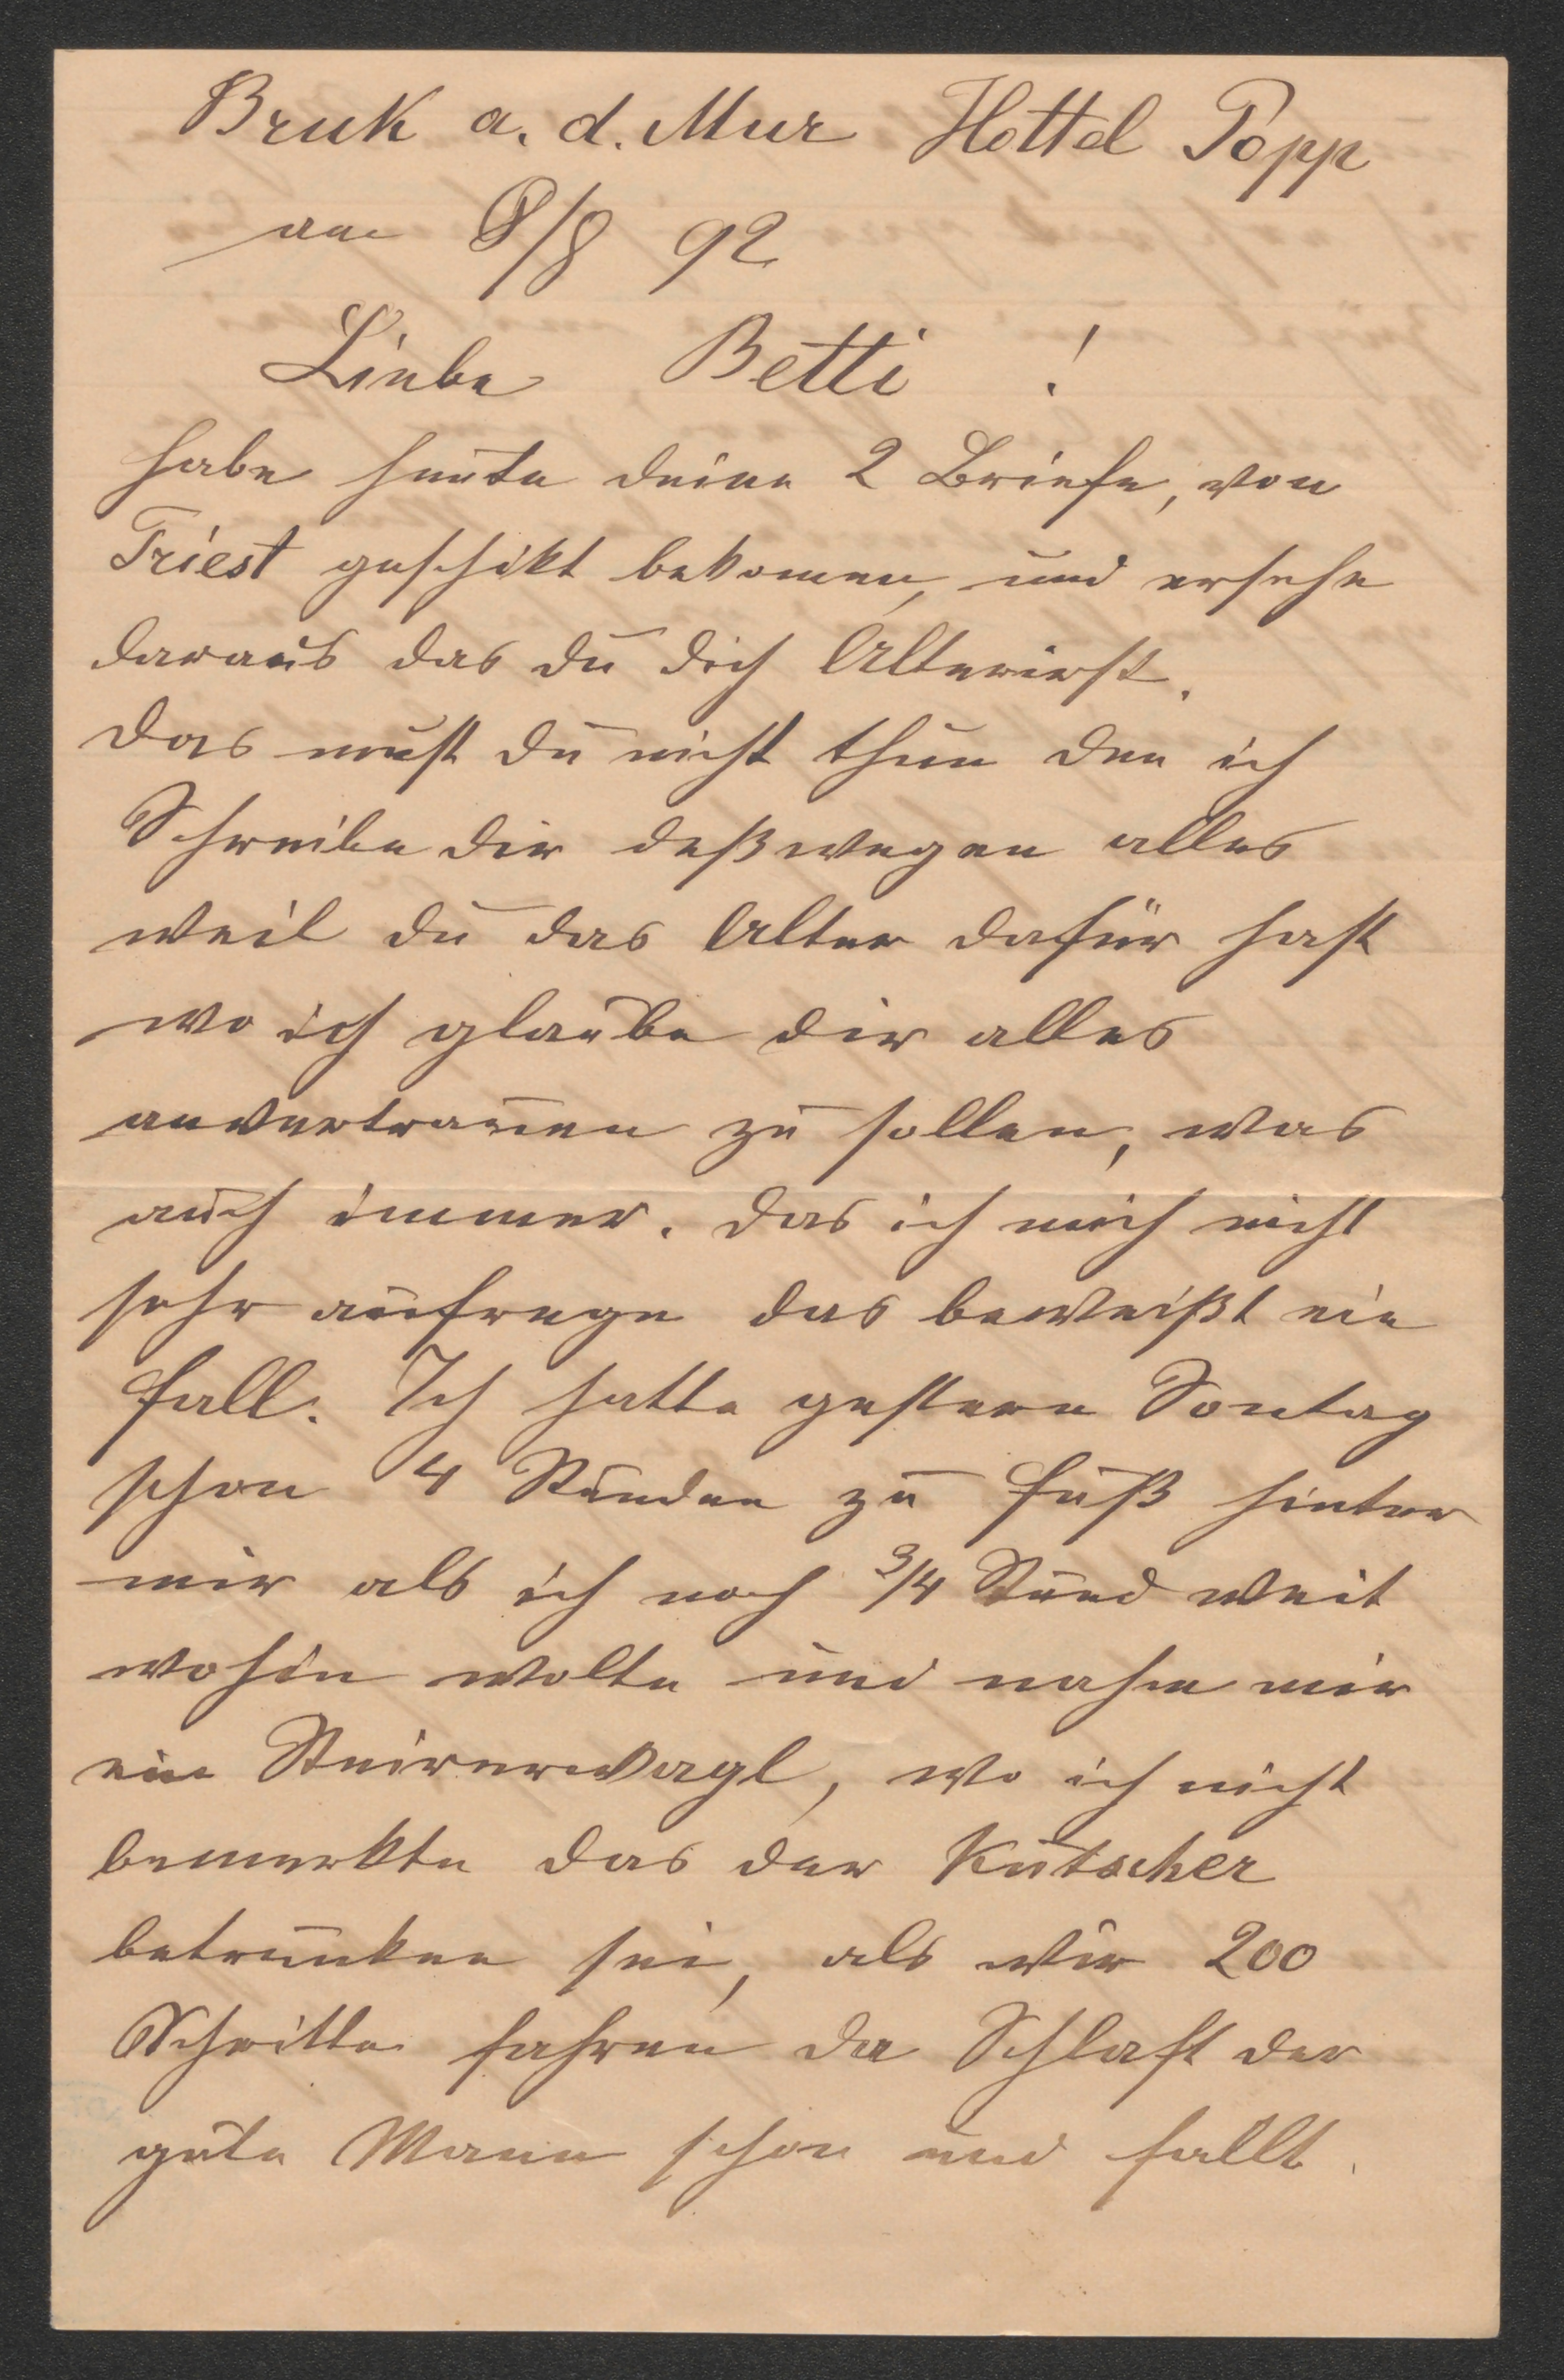 Bruk a. d. Mur Hottel Popp
am 8/8 92
Liebe Betti !
habe heute deine 2 Briefe, von
Triest geschikt bekomen, und ersehe
daraus das du dich Alterirst.
Das must du nicht thun den ich
Schreibe dir deßwegen alles
weil du das Alter dafür hast
wo ich glaube dir alles
anvertrauen zu sollen, was
auch immer. Das ich mich nicht
sehr aufrege das beweißt ein
fall. Ich hatte gestern Sontag
schon 4 Stunden zu fuß hinter
mir als ich noch 3/4 Stund weit
wohin wolte und nahm mir
ein Steirerwagl, wo ich nicht
bemerkte das der Kutscher
betrunken sei, als wir 200
Schritte fahren da Schlaft der
gute Mann schon und fallt